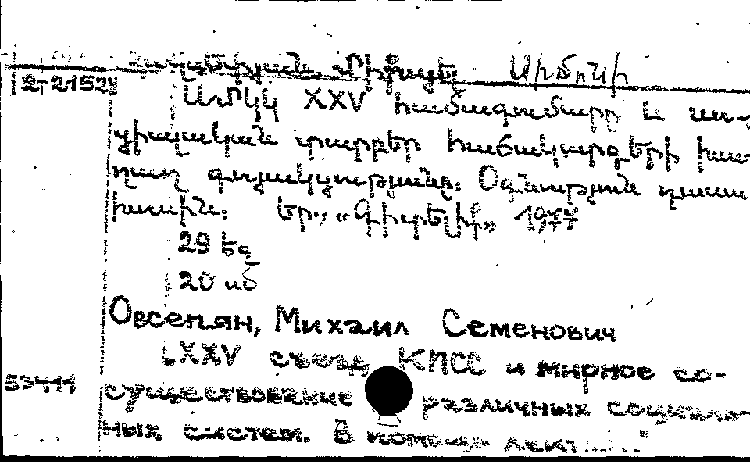 Հովսեփյան, Միքայել Սիմոնի
2-2152
ՍՄԿԿ XXV համագումարը և սո-
ցիալական տարբեր հասարակարգերի խա-
ղաղ գոյակցությունը: Օգնություն դասա
խոսին: Եր., «Գիտելիք» 1977
29 էջ
20 սմ
Овсепян, Михаил Семенович
XXV съезд КПСС и мирное со-
53411
существование различных социаль-
ных систем. В помощь лект